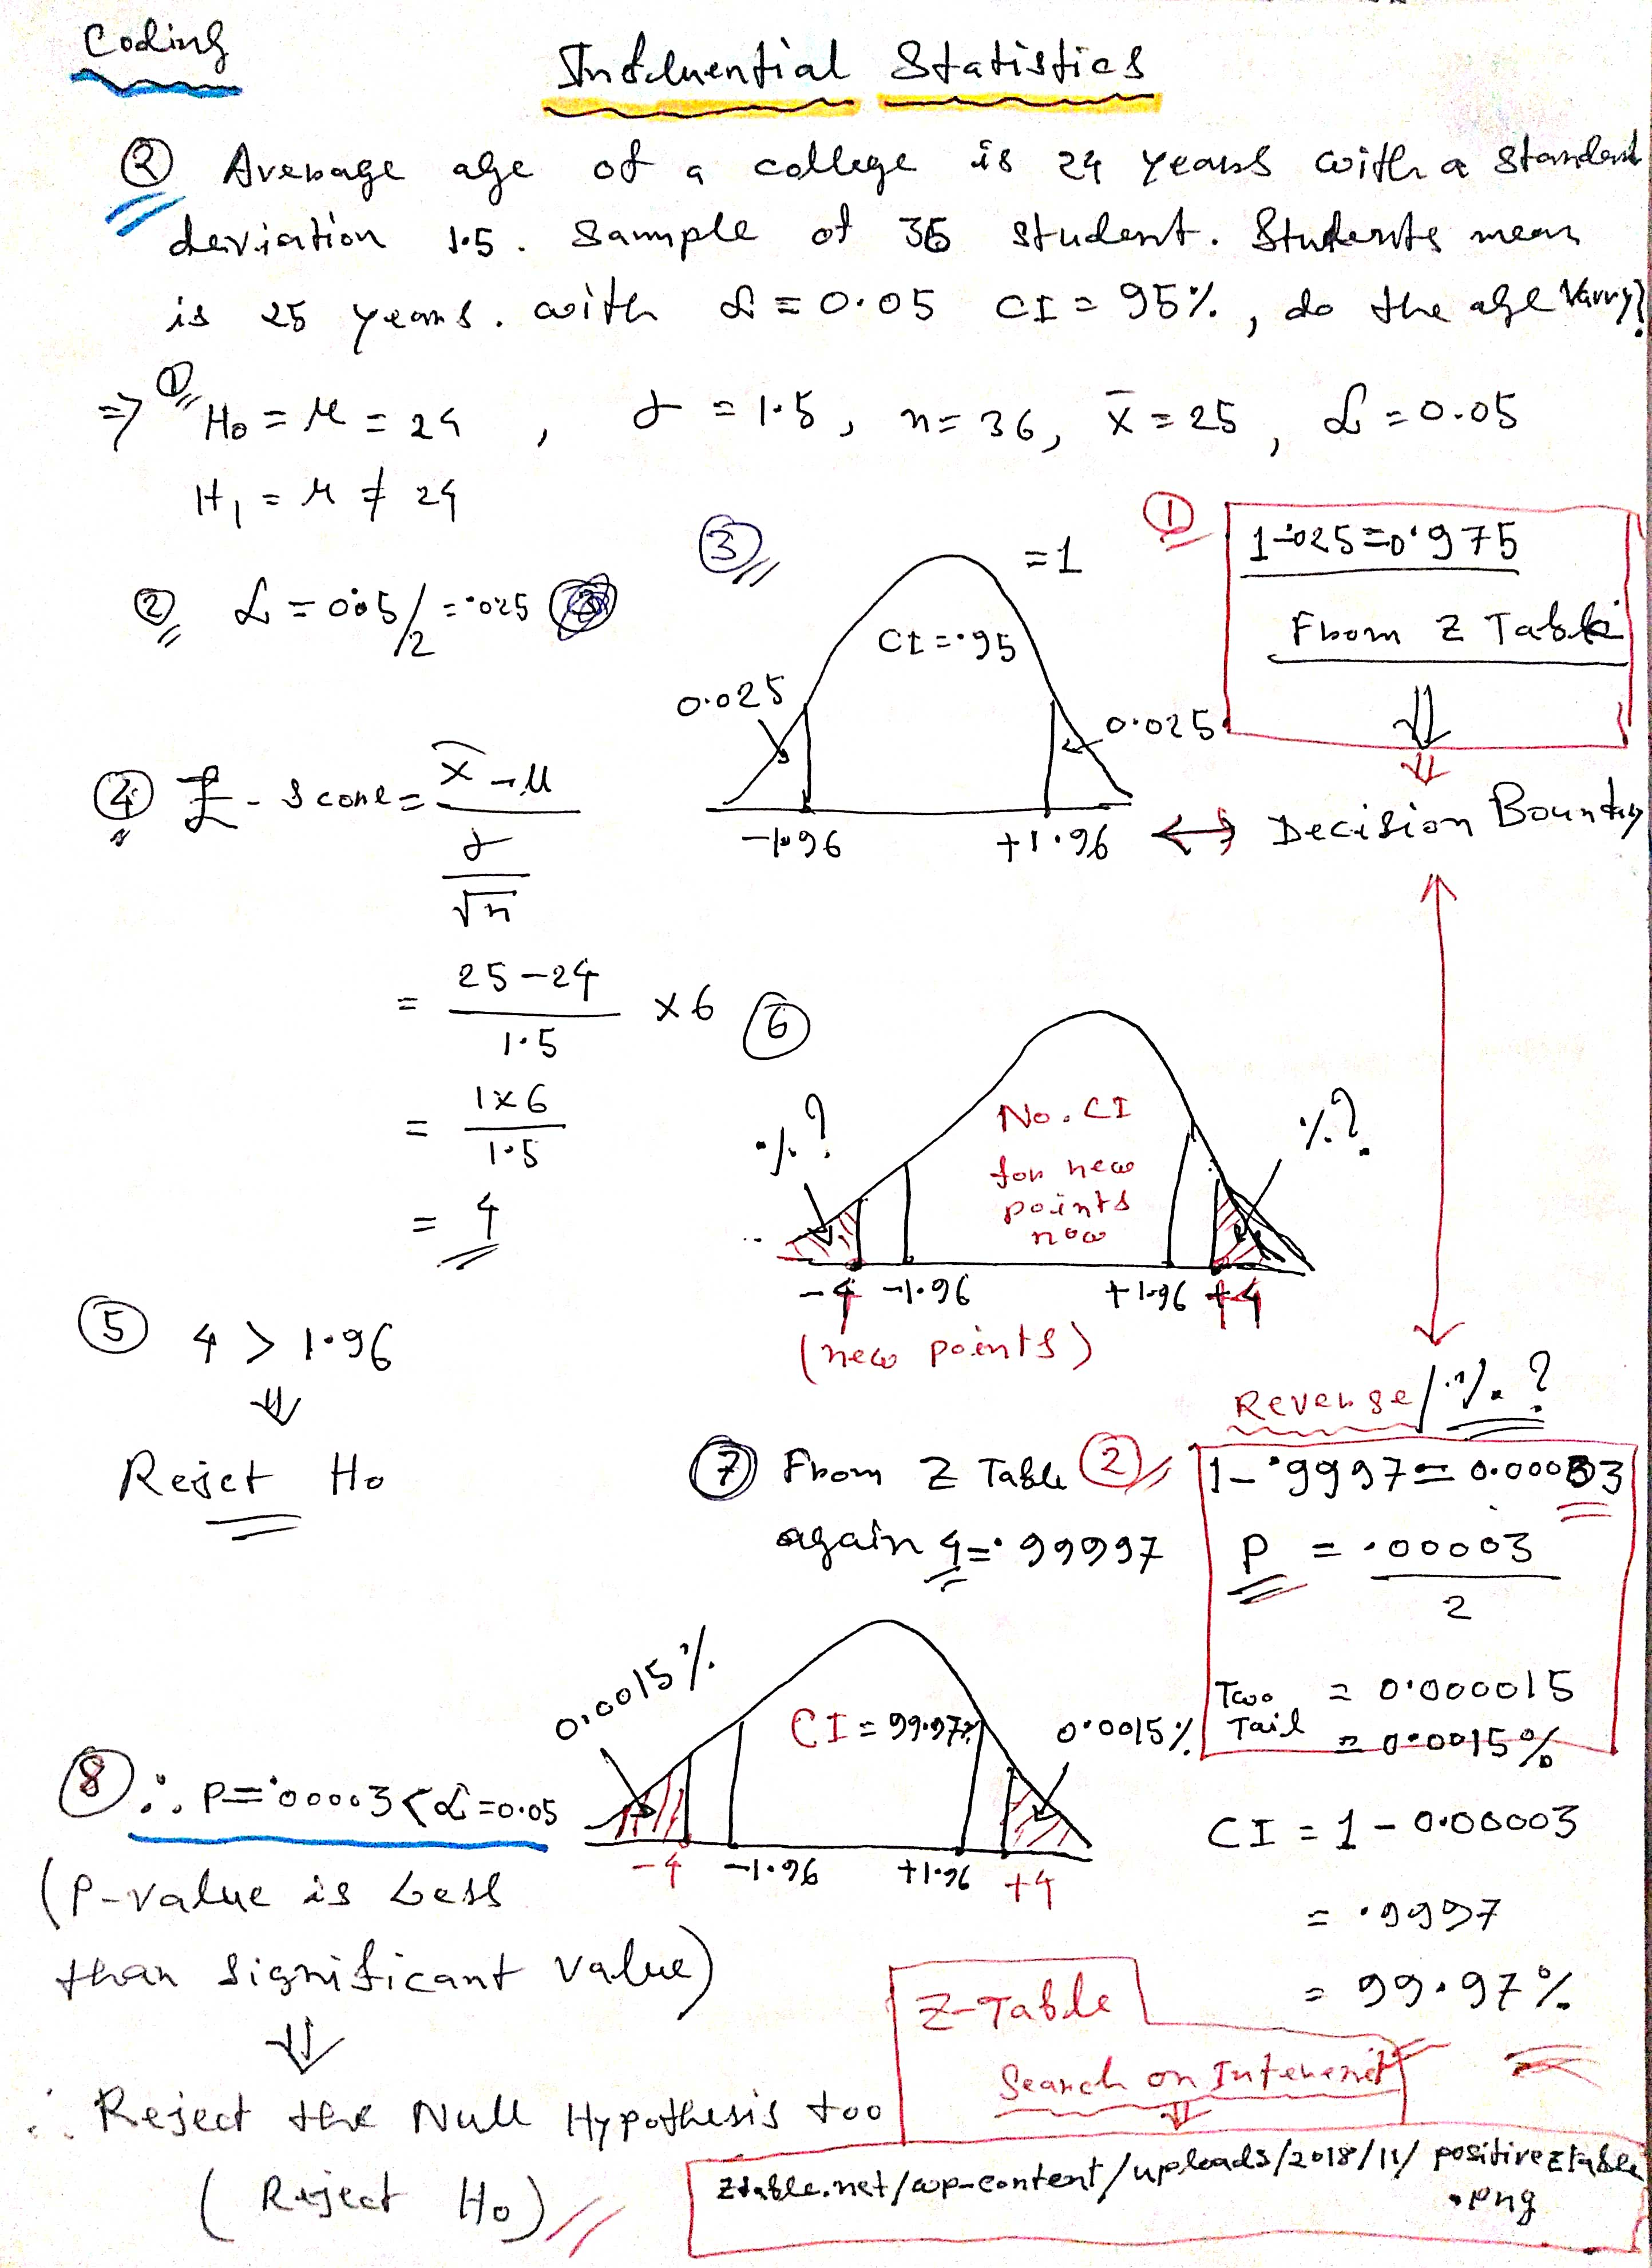 Coding
Influential Statistics
② Average age of a college is 24 years with a standard
deviation 1.5. Sample of 36 student. Students mean
is 25 years. with α = 0.05 CI = 95%, do the age Varry?
⇒ ① H₀ = μ = 24, σ = 1.5, n = 36, x̄ = 25, α = 0.05
H₁ = μ ≠ 24
② α = 0.05/2 = .025
③ = 1
CI = .95
0.025
0.025
-1.96 +1.96 ↔ Decision Boundry
① 1-.025=0.975
From Z Table
⇓
⇓
④ Z-Score = x̄ - μ
σ
√n
= 25-24 × 6
1.5
= 1×6
1.5
= 4
⑤ 4 > 1.96
⇓
Rejct H₀
⑥
%?
%?
No. CI
for new
points
now
-4 -1.96 +1.96 +4
(new points)
Reverse/%?
⑦ From Z Table ②
again 4=.99997
1-.9997=0.00003
P = .00003
2
Two = 0.000015
Tail = 0.0015%
0.0015%
CI = 99.97%
0.0015%
-4 -1.96 +1.96 +4
CI = 1 - 0.00003
= .9997
= 99.97%
⑧ ∴ P=.00003 < α=0.05
(P-value is Less
than significant value)
⇓
∴ Reject the Null Hypothesis too
(Reject H₀)
Z-Table
Search on Interenet
⇓
ztable.net/wp-content/uploads/2018/11/positiveztable
.png